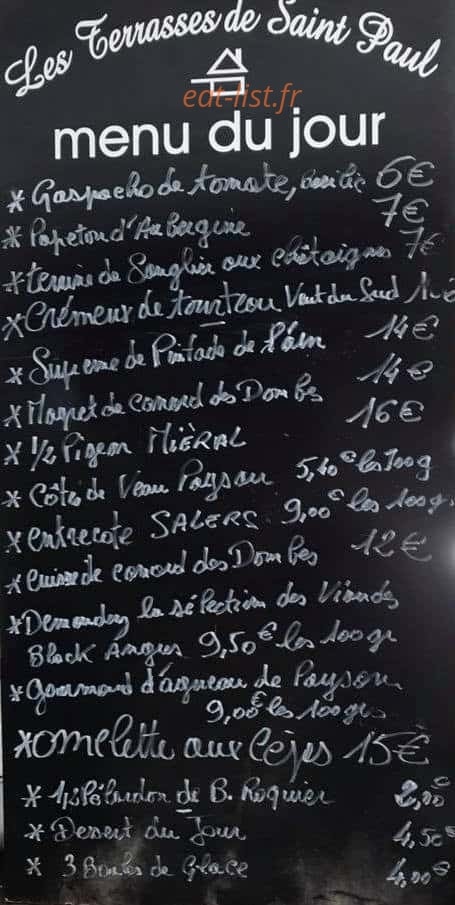 Les Terrasses de Saint Paul
eat-list.fr
menu du jour
* Gaspacho de tomate, basilic 6€
* Papeton d'Aubergine 7€
* terrine de Sanglier aux châtaignes 7€
* Crémeux de tourteau Vent du Sud
* Supreme de Pintade de l'Ain 14€
* Magret de canard des Dombes 14€
* 1/2 Pigeon MIÈRAL 16€
* Côte de Veau Paysan 5,40€ les 100g
* entrecote SALERS 9,00€ les 100g
* Cuisse de canard des Dombes 12€
* Demandez la sélection des Viandes
Black Angus 9,50€ les 100gr
* gourmand d'agneau de Paysan
9,00€ les 100grs
* OMElette aux Cèpes 15€
* 1/2 Pélardon de B. Roquier 2,00€
* Desert du Jour 4,50€
* 3 Boules de Glace 4,00€